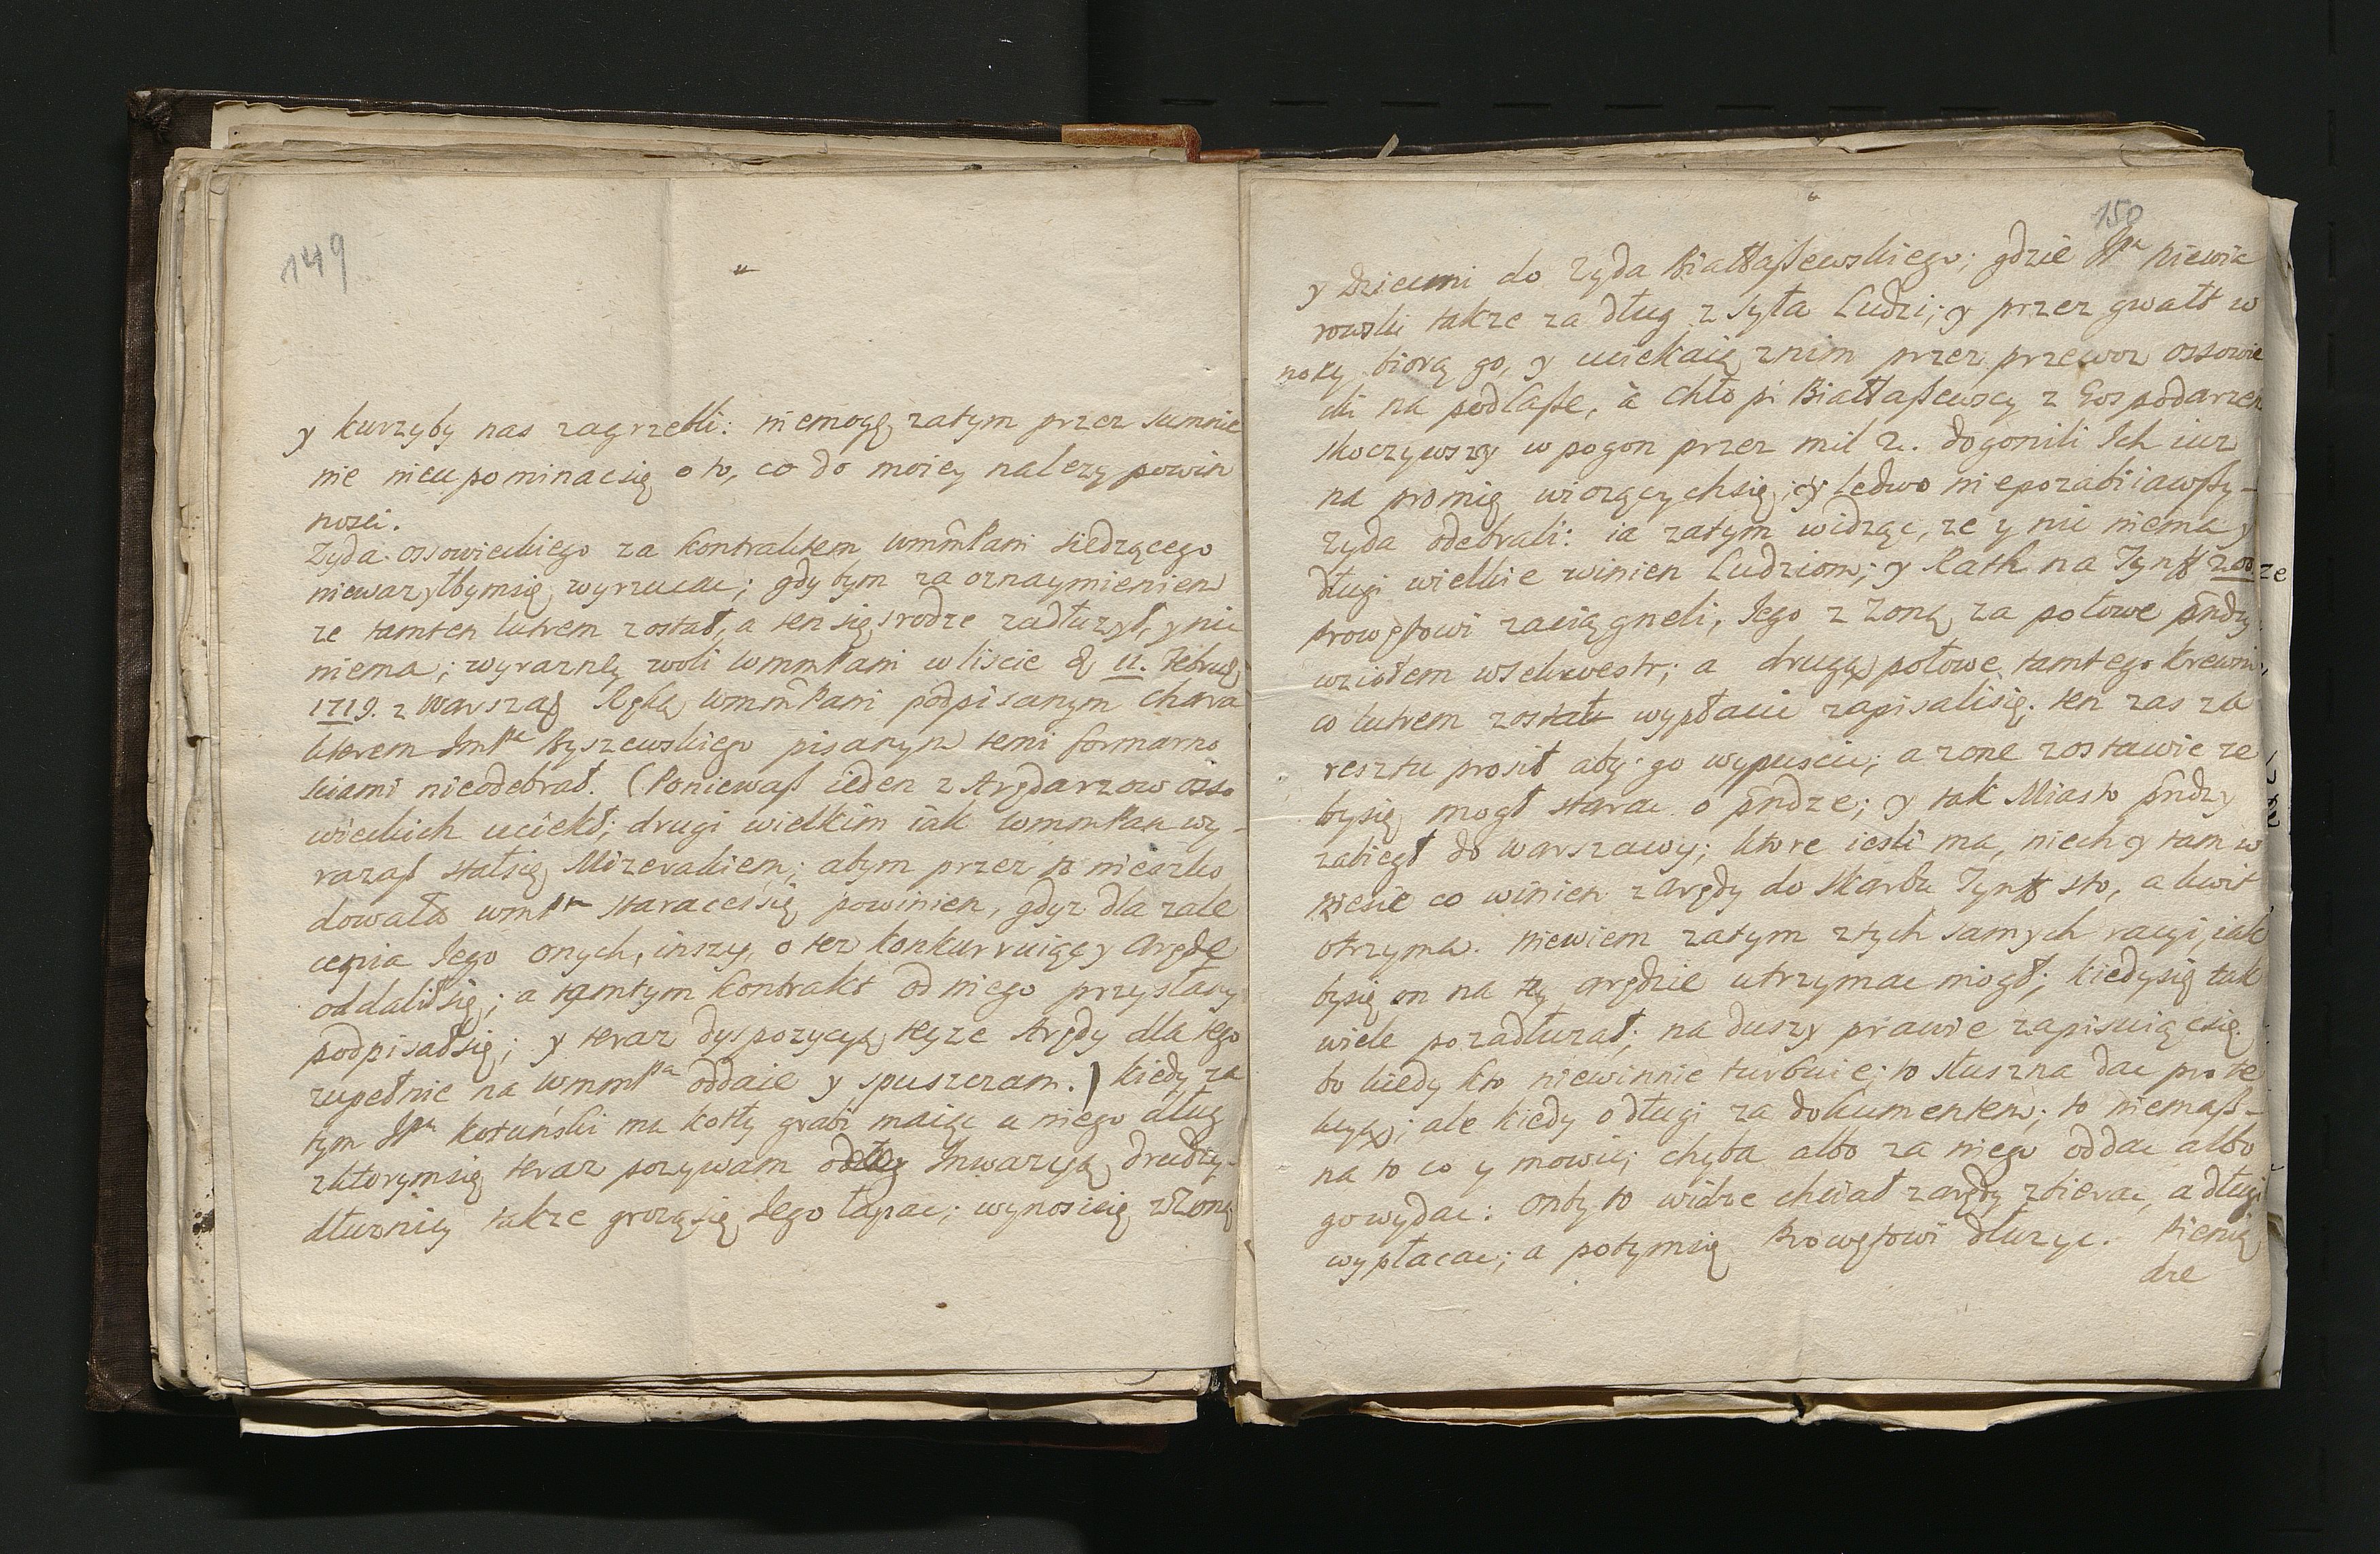 149
y kurzyby nas zagrzebli: niemogę zatym przez sumnie
nie nieupominacsię o to, co do moiey nalezy powin
nosci.
Zyda ossowieckiego za Kontraktem WmmPani siedzącego
niewazyłbymsię wyrzucac; gdybym za oznaymieniem
ze tamten lutrem został, a ten się srodze zadłuzył, y nic
niema; wyrazney woli WmmPani w liscie 11. Febru
1719. z Warsza Ręką WmmPani podpisanym chara
kterem ImPa Ryszewskiego pisanym temi formarno
sciami nieodebrał. (Poniewaß ieden z Arędarzow osso
wieckich uciekł; drugi wielkim iak WmmPan wy-
razaß stałsię Mizerakiem; abym przez to nieszko
dowała WmPn staracsię powinien, gdyz dla zale
cenia Jego onych, inszy, o tez konkurruiący Arędę
oddaliłsię; a tamtym Kontrakt od niego przysłany
podpisałsię; y teraz dyspozycyą teyze Arędy dla tego
zupełnie na WmmPa oddaie y spuszczam.) kiedy za
tym JPan Kotuński ma kotły grabi maiąc u niego dług
zktorymsię teraz pozywam Inwazyą drudzy
dłuznicy takze grozą się Jego łapac; wynosisię z Zoną
150
y dziecmi do Zyda Białłaßewskiego; gdzie JPa Niewia
rowski takze za dług zsyła Ludzi; y przez gwałt w
nocy biorą go, y uciekaią znim przez przewoz ossowie
cki na podlaße, à Chłopi Białłaßewscy z Gospodarzem
skoczywszy w pogon przez mil 2. dogonili Ich iuz
na promię wiozących się; y ledwo niepozabiiawßy-
zyda odebrali: ia zatym widząc, ze y nic niema y
długi wielkie winien Ludziom; y Rath na Tynß 200 ze
prowętowi zaciągneli, Jego z Zoną za połowe pndzy
wziołem wSekwestr; a drugą połowę tamtego krewni,
co lutrem został wypłacic zapisalisię; ten zas za
resztu prosił aby go wypuscic; a zone zostawic ze
bysię mogł starac o pndze; y tak Miasto pndzy
zabiegł do Warszawy; ktore iesli ma, niech y tam w
niesie co winien zArędy do Skarbu Tynß sto, a kwit
otrzyma. Niewiem zatym ztych samych racyi, iak
bysię on na tey arędzie utrzymac mogł; kiedysię tak
wiele pozadłuzał; na duszy prawie zapisuiącsię
bo kiedy kto niewinnie turbuie; to słuszna dac prote
kcyą; ale kiedy o długi za dokumentem; to niemaß-
na to co y mowic; chyba albo za niego oddac albo
gowydac: Onby to widze chciał zarędy zbierac, a długi
wypłacac; a potymsię Prowętowi dłuzyc. Pienią
dze